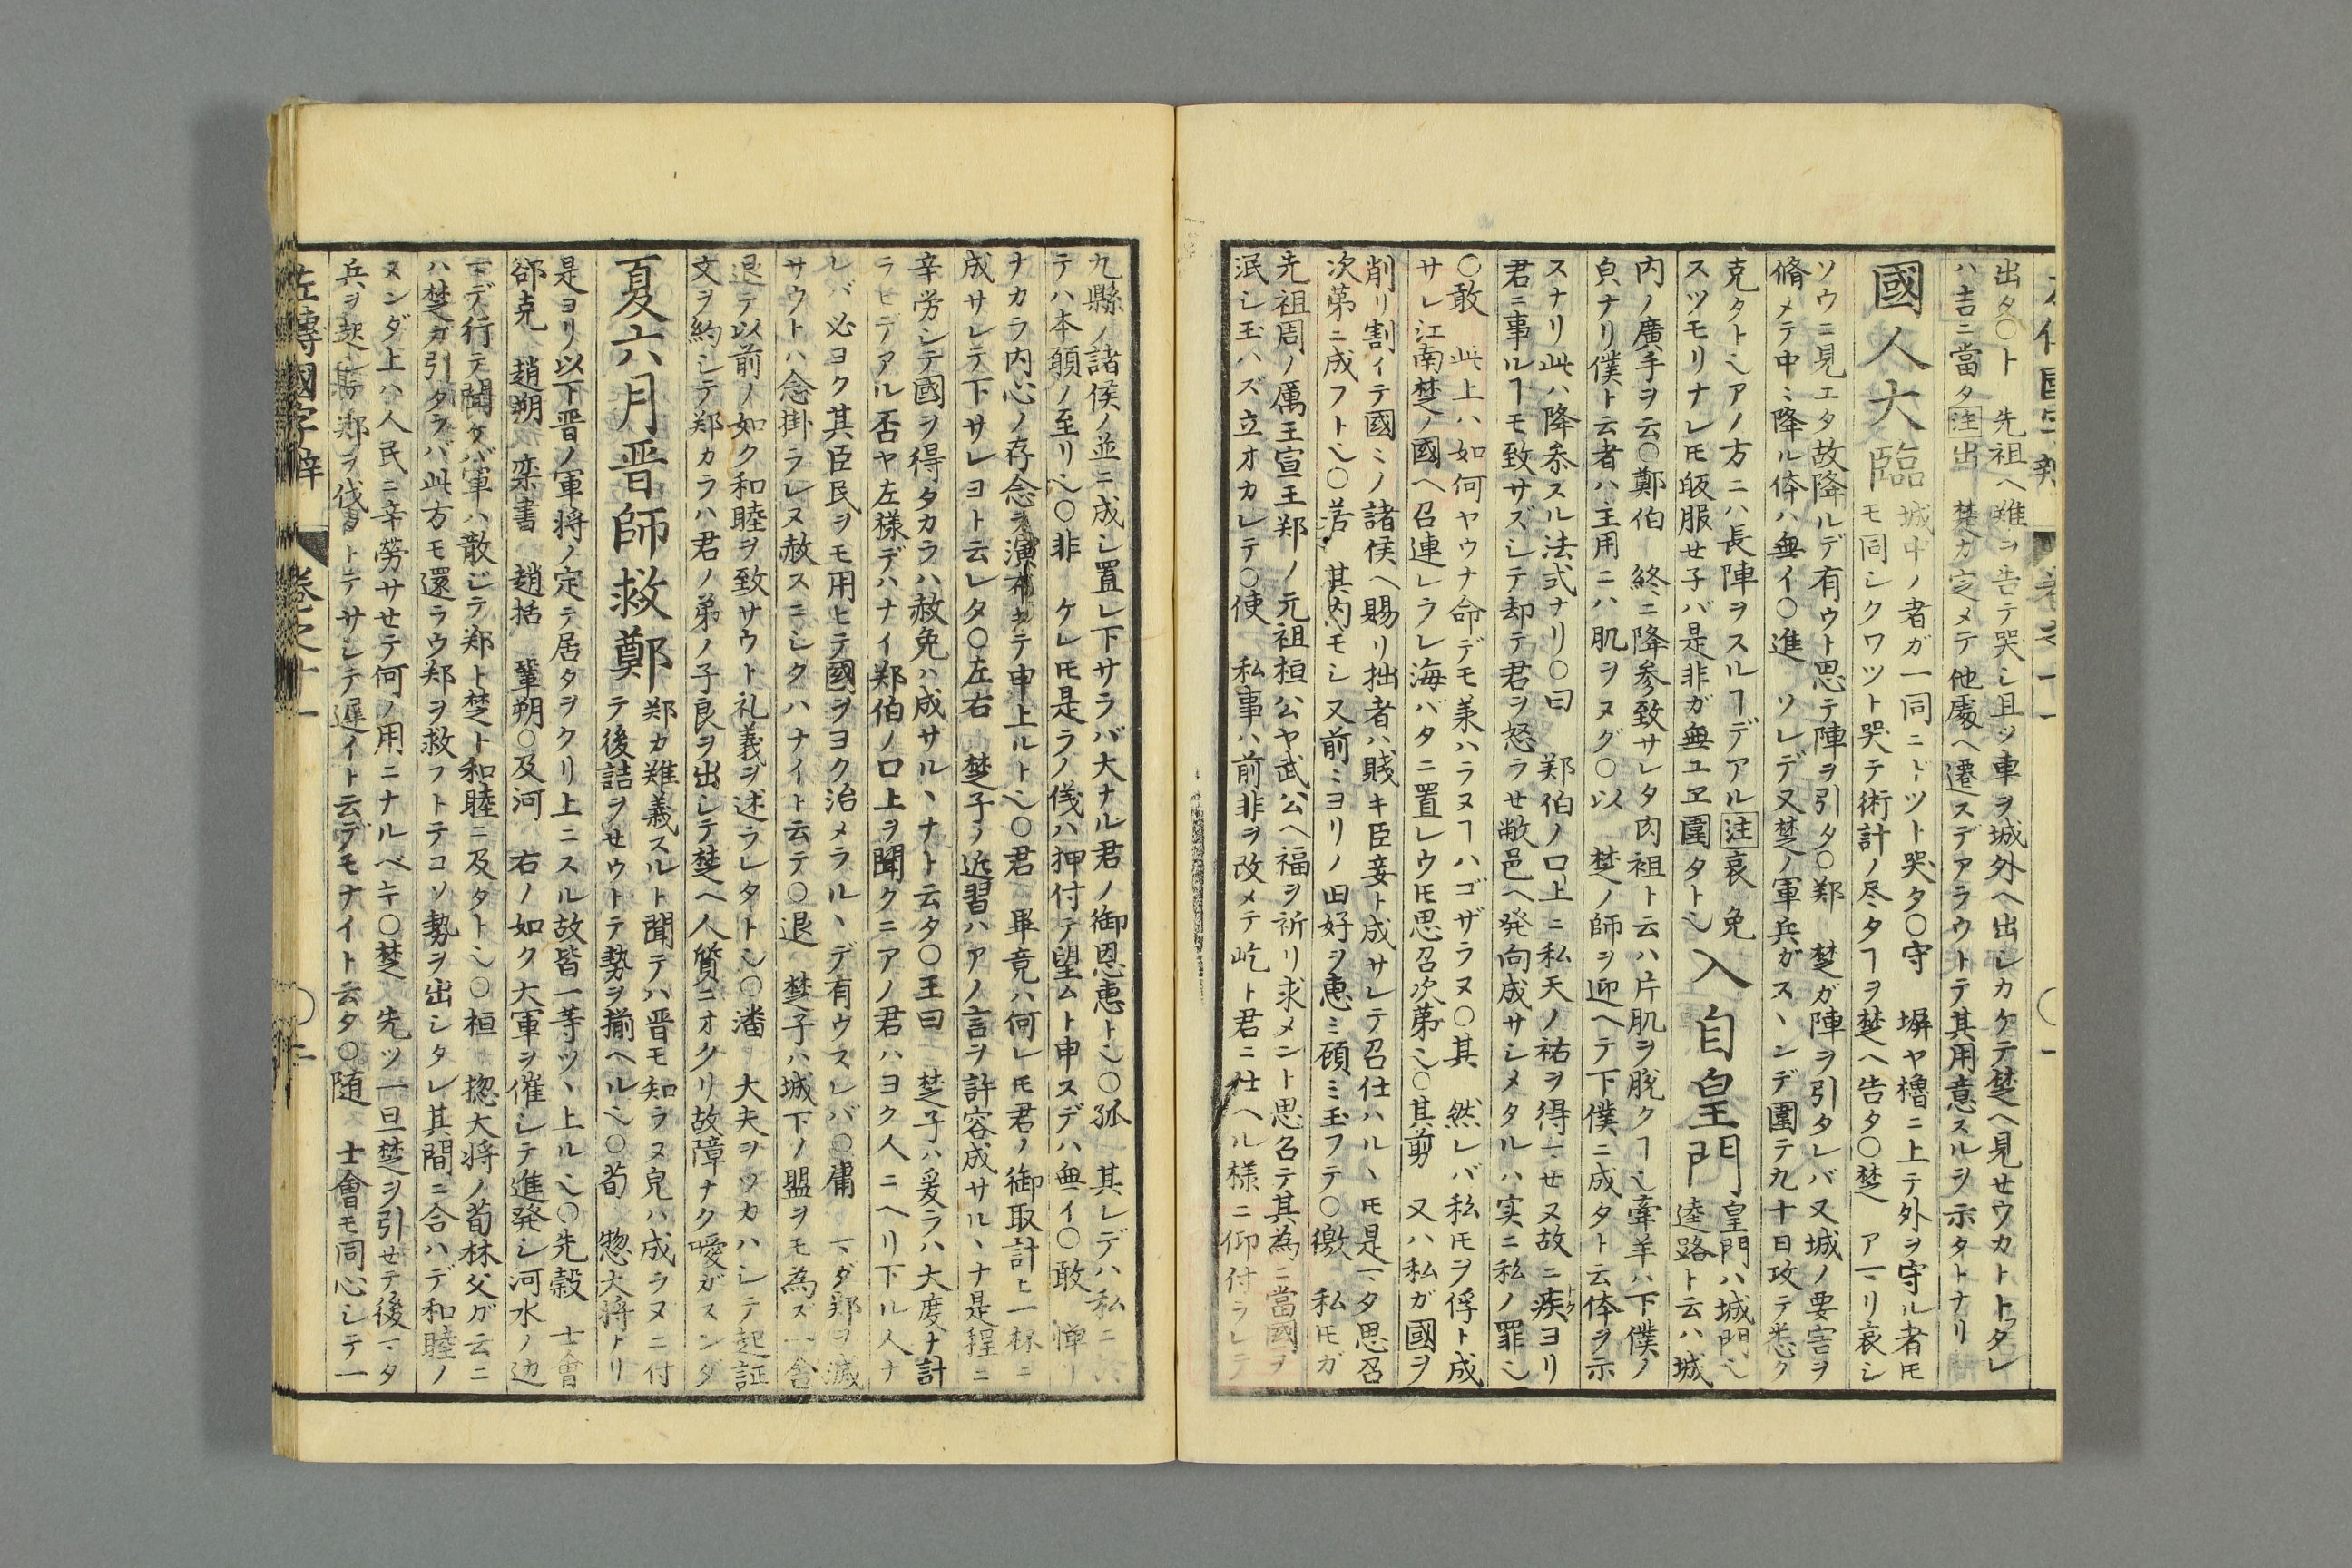 出タ〇ト 先祖ヘ難ヲ告テ哭シ且ツ車ヲ城外ヘ出シカケテ楚ヘ見せウカトトッタレ
ハ吉ニ當タ注出 楚カ定メテ他處ヘ遷スデアラウトテ其用意スルヲ示タトナリ
國人大臨
城中ノ者ガ一同ニドツト哭タ〇守 塀ヤ櫓ニ上テ外ヲ守ル者ヒ
モ同シクワツト哭テ術計ノ尽タヿヲ楚ヘ告タ〇楚 アマリ哀シ
ソウニ見エタ故降ルデ有ウト思テ陣ヲ引タ〇郑 楚ガ陣ヲ引タレバ又城ノ要害ヲ
脩メテ中〻降ル体ハ無イ〇進 ソレデ又楚ノ軍兵ガスヽンデ圍テ九十日攻テ悉ク
克タト也アノ方ニハ長陣ヲスルヿデアル注哀 免
スツモリナレ𪜈皈服せ子バ是非ガ無ユヱ圍タト也
入自皇門
皇門ハ城門也
逵路ト云ハ城
内ノ廣手ヲ云〇鄭伯 終ニ降参致サレタ肉袒ト云ハ片肌ヲ脱クヿ也牽羊ハ下僕ノ
貟ナリ僕ト云者ハ主用ニハ肌ヲヌグ〇以 楚ノ師ヲ迎ヘテ下僕ニ成タト云体ヲ示
スナリ此ハ降参スル法式ナリ〇曰 郑伯ノ口上ニ私天ノ祐ヲ得マせヌ故ニ疾ヨリ
君ニ事ルヿモ致サズシテ却テ君ヲ怒ラせ敝邑ヘ発向成サシメタルハ実ニ私ノ罪也
〇敢 此上ハ如何ヤウナ命デモ羕ハラヌヿハゴザラヌ〇其 然レバ私𪜈ヲ俘ト成
サレ江南楚ノ國ヘ召連レラレ海バタニ置レウ𪜈思召次第也〇其剪 又ハ私ガ國ヲ
削リ割イテ國〻ノ諸侯ヘ賜リ拙者ハ賤キ臣妾ト成サレテ召仕ハルヽ𪜈是マタ思召
次第ニ成フト也〇若 其内モシ又前〻ヨリノ旧好ヲ惠ミ顧ミ玉フテ〇徼 私𪜈ガ
先祖周ノ厲王宣王郑ノ元祖桓公ヤ武公ヘ福ヲ祈リ求メント思召テ其為ニ當國ヲ
泯シ玉ハズ立オカレテ〇使 私事ハ前非ヲ改メテ屹ト君ニ仕ヘル様ニ仰付ラレテ
九縣ノ諸侯ノ並ニ成シ置レ下サラバ大ナル君ノ御恩惠ト也〇孤 其レデハ私ニ
テハ本願ノ至リ也〇非 ケレ𪜈是ラノ儀ハ押付テ望ムト申スデハ無イ〇敢 惮リ
ナカラ内心ノ存念ヲ演布キテ申上ルト也〇君 畢竟ハ何レ𪜈君ノ御取計ヒ一杯ニ
成サレテ下サレヨト云レタ〇左右 楚子ノ近習ハアノ言ヲ許容成サルヽナ是程ニ
辛労シテ國ヲ得タカラハ赦免ハ成サルヽナト云タ〇王曰 楚子ハ爰ラハ大度ナ計
ラヒデアル否ヤ左様デハナイ郑伯ノ口上ヲ聞クニアノ君ハヨク人ニヘリ下ル人ナ
レバ必ヨク其臣民ヲモ用ヒテ國ヲヨク治メラルヽデ有ウスレバ〇庸 マダ郑ヲ滅
サウトハ念掛ラレヌ赦スニシクハナイト云テ〇退 楚子ハ城下ノ盟ヲモ為ズ一舎
退テ以前ノ如ク和睦ヲ致サウト礼義ヲ述ラレタト也〇潘 大夫ヲツカハシテ起証
文ヲ約シテ郑カラハ君ノ弟ノ子良ヲ出シテ楚ヘ人質ニオクリ故障ナク噯ガスンダ
夏六月晋師救鄭
郑カ難義スルト聞テハ晋モ知ラヌ皃ハ成ラヌニ付
テ後詰ヲせウトテ勢ヲ揃ヘル也〇荀 惣大将トリ
是ヨリ以下晋ノ軍将ノ定テ居タヲクリ上ニスル故皆一等ツヽ上ル也〇先縠 士會
郤克 趙朔 栾書 趙括 鞏朔〇及河 右ノ如ク大軍ヲ催シテ進発シ河水ノ辺
マデ行テ聞ケバ軍ハ散ジテ郑ト楚ト和睦ニ及タト也〇桓 惣大将ノ荀林父ガ云ニ
ハ楚ガ引タラバ此方モ還ラウ郑ヲ救フトテコソ勢ヲ出シタレ其間ニ合ハデ和睦ノ
スンダ上ハ人民ニ辛勞サせテ何ノ用ニナルベキ〇楚 先ツ一旦楚ヲ引せテ後マタ
兵ヲ起シ郑ヲ伐タトテサシテ遲イト云デモナイト云タ〇随 士會モ同心シテ一
左傳國字辯 巻之十一 〇二